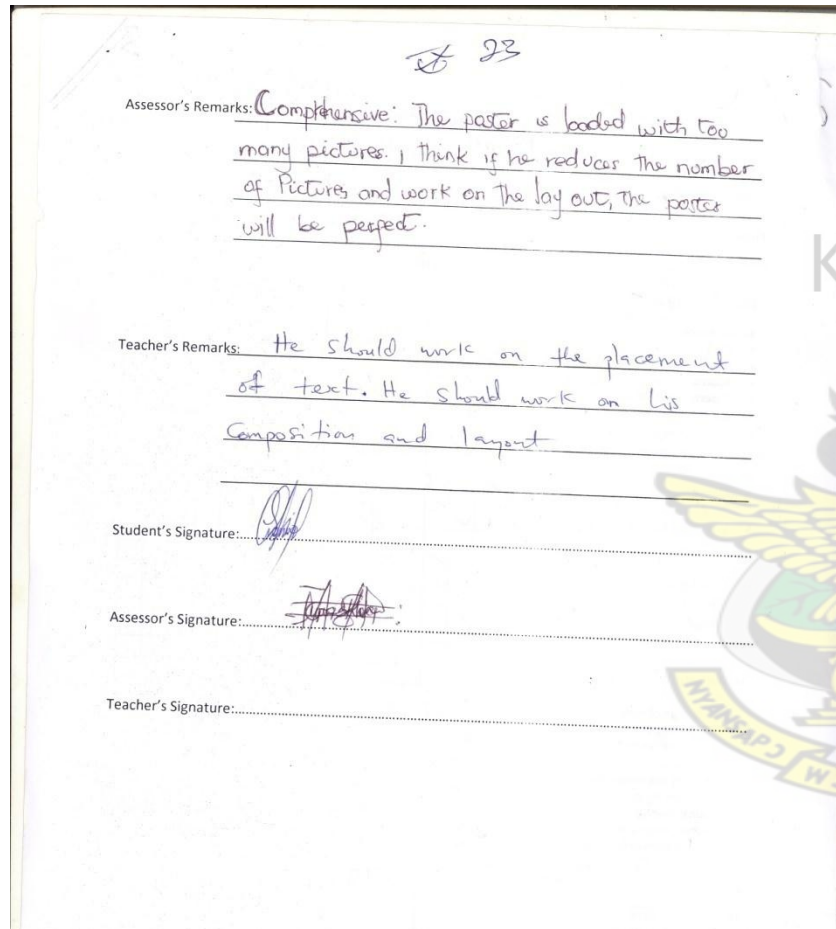 23
Assessor's Remarks: Comprehensive: The poster is loaded with too
many pictures. I think if he reduces the number
of Pictures and work on the lay out, the poster
will be perfect.
K
Teacher's Remarks: He should work on the placement
of text. He should work on his
Composition and layout
Student's Signature:
Assessor's Signature:
Teacher's Signature:
NYANSAPƆ W